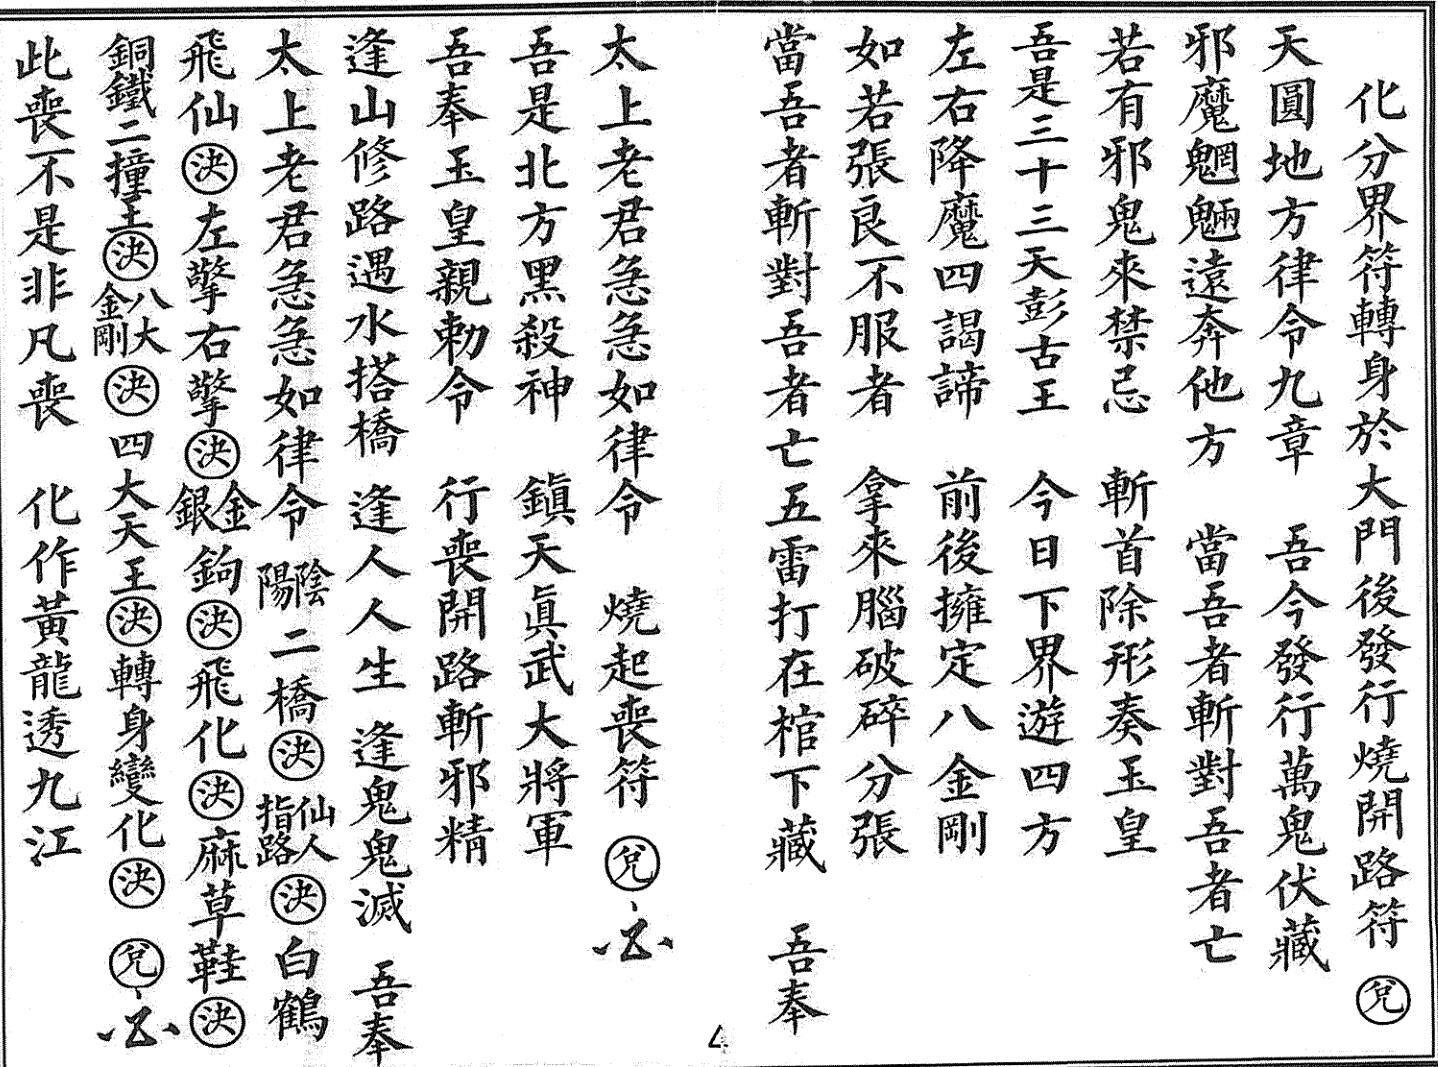 化分界符轉身於大門後發行燒開路符 㕥
天圓地方律令九章　吾今發行萬鬼伏藏
邪魔魍魎遠奔他方　當吾者斬對吾者亡
若有邪鬼來禁忌　斬首除形奏玉皇
吾是三十三天彭古王　今日下界遊四方
左右降魔四謁諦　前後擁定八金剛
如若張良不服者　拿來腦破碎分張
當吾者斬對吾者亡五雷打在棺下藏　吾奉
太上老君急急如律令　燒起喪符
吾是北方黑殺神　鎮天真武大將軍
吾奉玉皇親勅令　行喪開路斬邪精
逢山修路遇水搭橋　逢人人生　逢鬼鬼滅　吾奉
太上老君急急如律令　陰陽二橋決仙人指路決白鶴
飛仙決左擎右擎決金銀鉤決飛化決麻草鞋決
銅鐵二撞王決八大金剛決四大天王決轉身變化決
此喪不是非凡喪　化作黃龍透九江
4